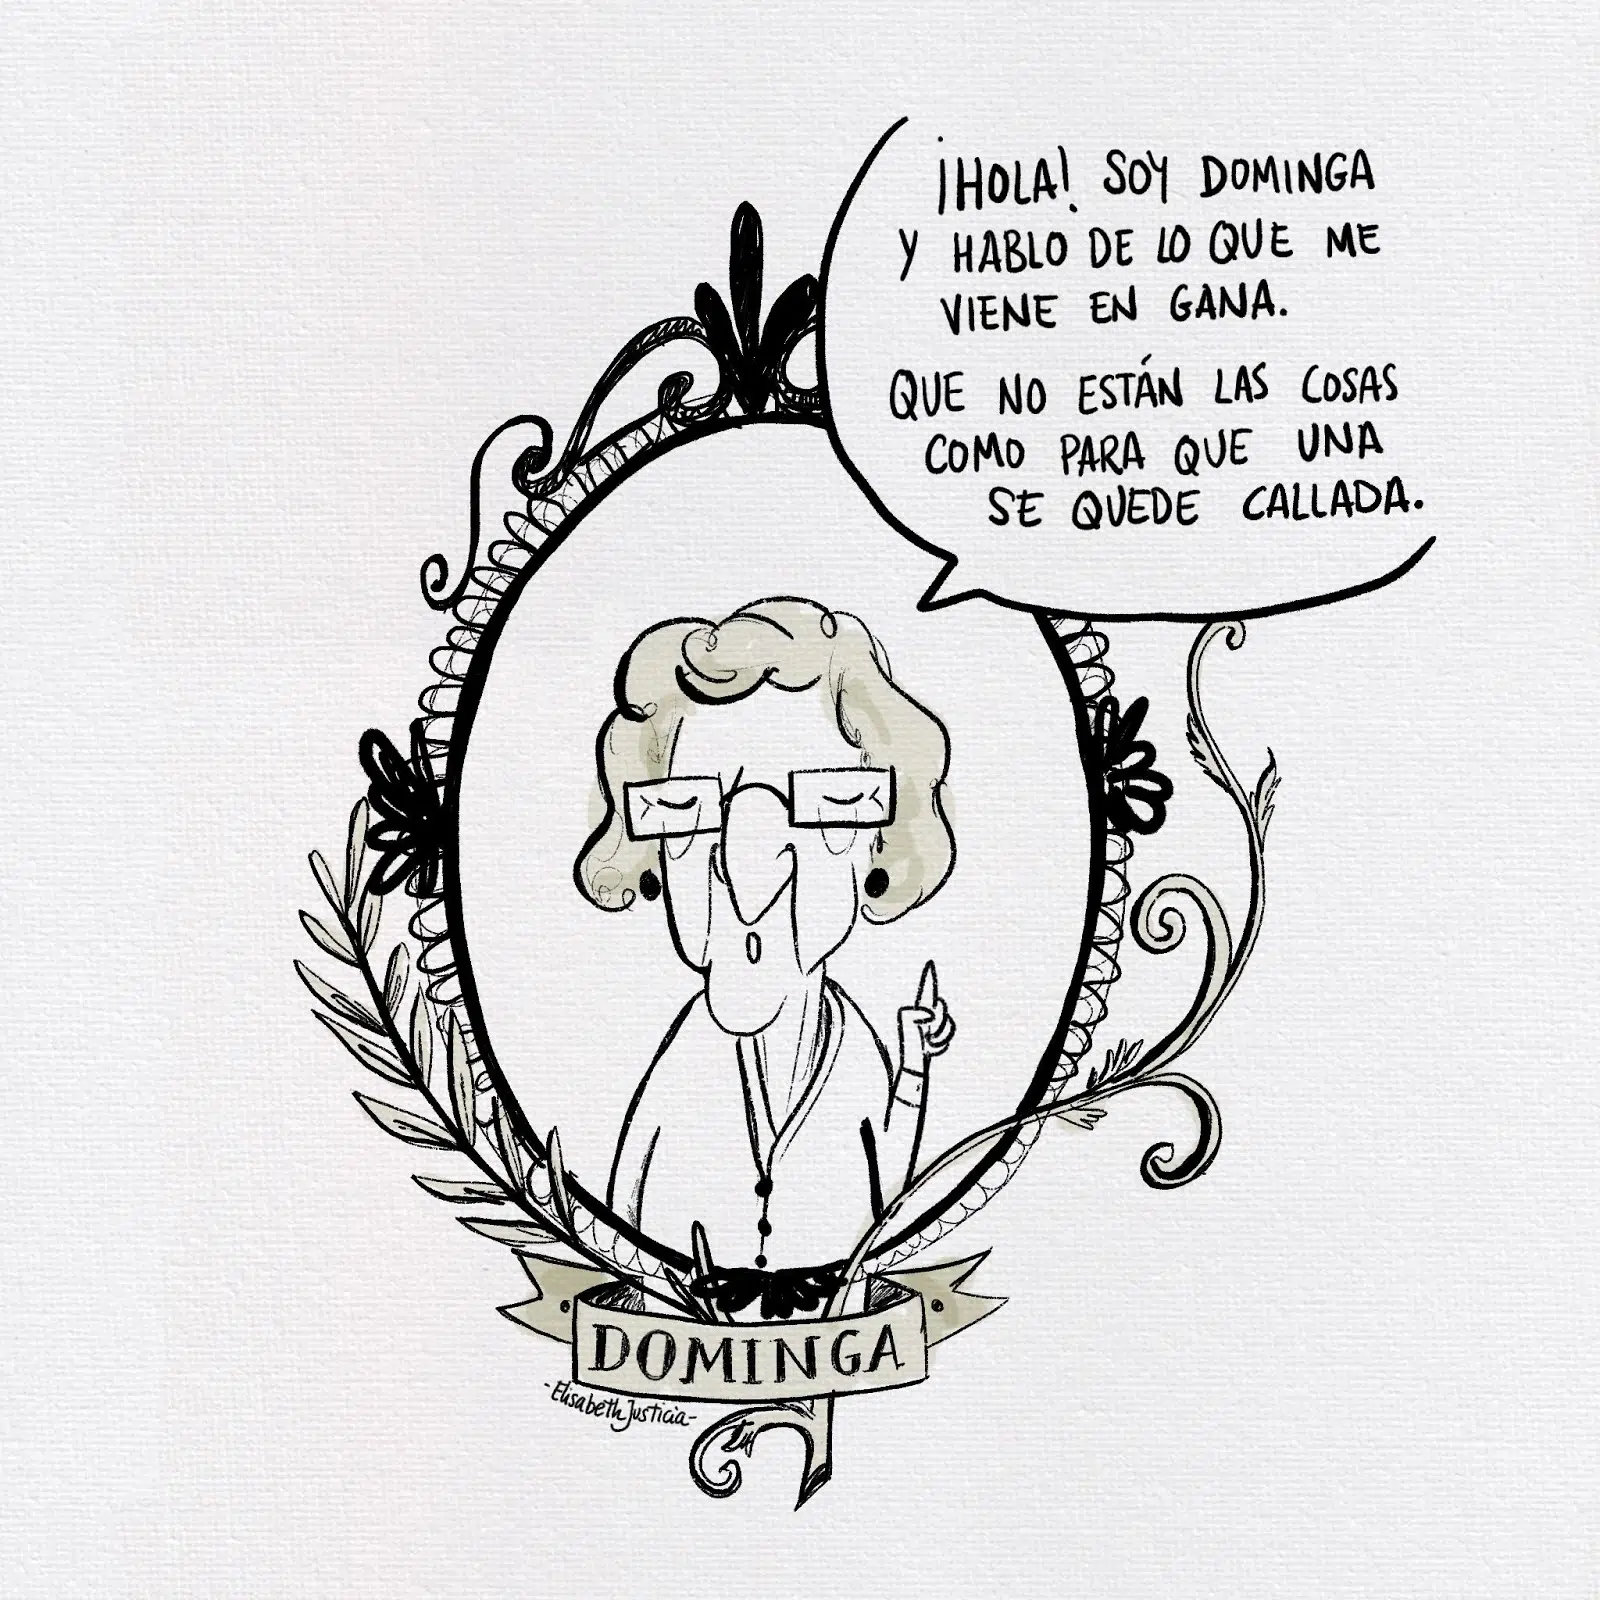 ¡HOLA! SOY DOMINGA
Y HABLO DE LO QUE ME
VIENE EN GANA.
QUE NO ESTÁN LAS COSAS
COMO PARA QUE UNA
SE QUEDE CALLADA.
DOMINGA
-Elisabeth Justicia-